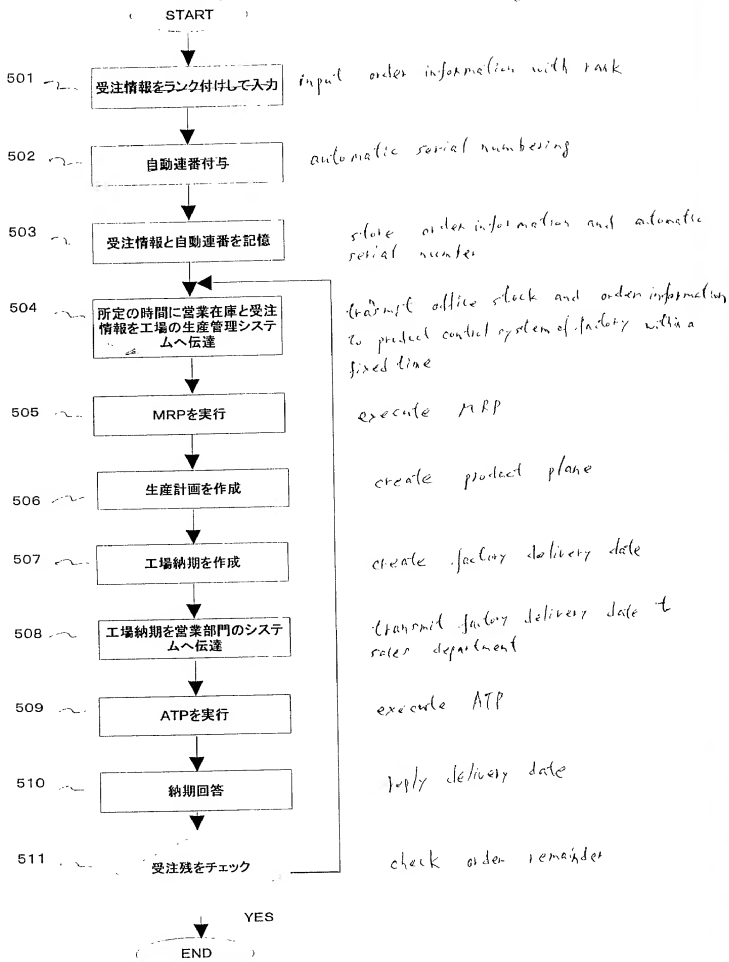 START
501 受注情報をランク付けして入力 input order information with rank
502 自動連番付与 automatic serial numbering
503 受注情報と自動連番を記憶 store order information and automatic
serial number
504 所定の時間に営業在庫と受注 transmit office stock and order information
情報を工場の生産管理システ to product control system of factory within a
ムへ伝達 fixed time
505 MRPを実行 execute MRP
506 生産計画を作成 create product plane
507 工場納期を作成 create factory delivery date
508 工場納期を営業部門のシステ transmit factory delivery date t
ムへ伝達 sales department
509 ATPを実行 execute ATP
510 納期回答 reply delivery date
511 受注残をチェック check order remainder
YES
END